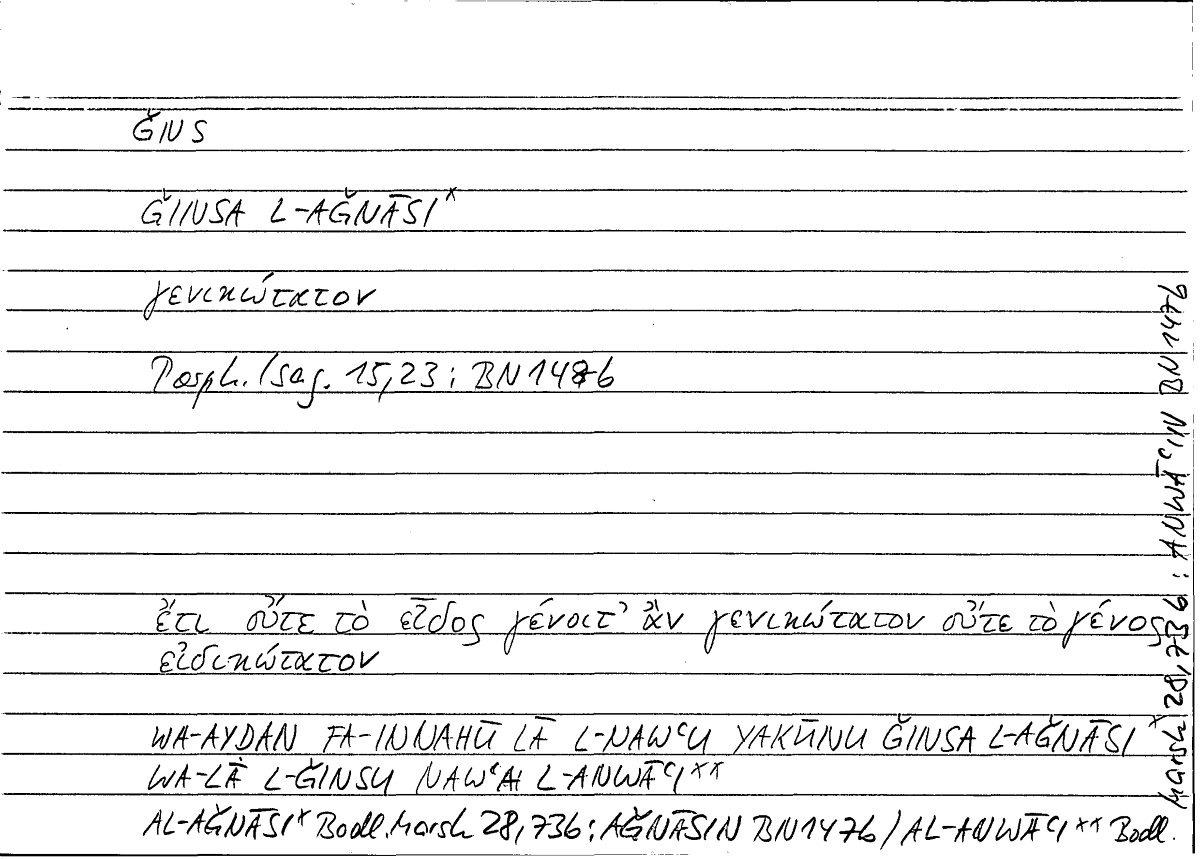 ǦINS
ǦINSA L-AǦNĀSI×
γενικώτατον
Porph. Isag. 15,23 : BN 147b
ἔτι οὔτε τὸ εἶδος γένοιτ' ἂν γενικώτατον οὔτε τὸ γένος
εἰδικώτατον
WA-AYDAN FA-INNAHŪ LĀ L-NAWʿU YAKŪNU ǦINSA L-AǦNĀSI×
WA-LĀ L-ǦINSU NAWʿA L-ANWĀʿI××
AL-AǦNĀSI× Bodl. Marsh 28,73b : AǦNĀSIN BN 147b / AL-ANWĀʿI×× Bodl.
Marsh 28,73b : ANWĀʿIN BN 147b